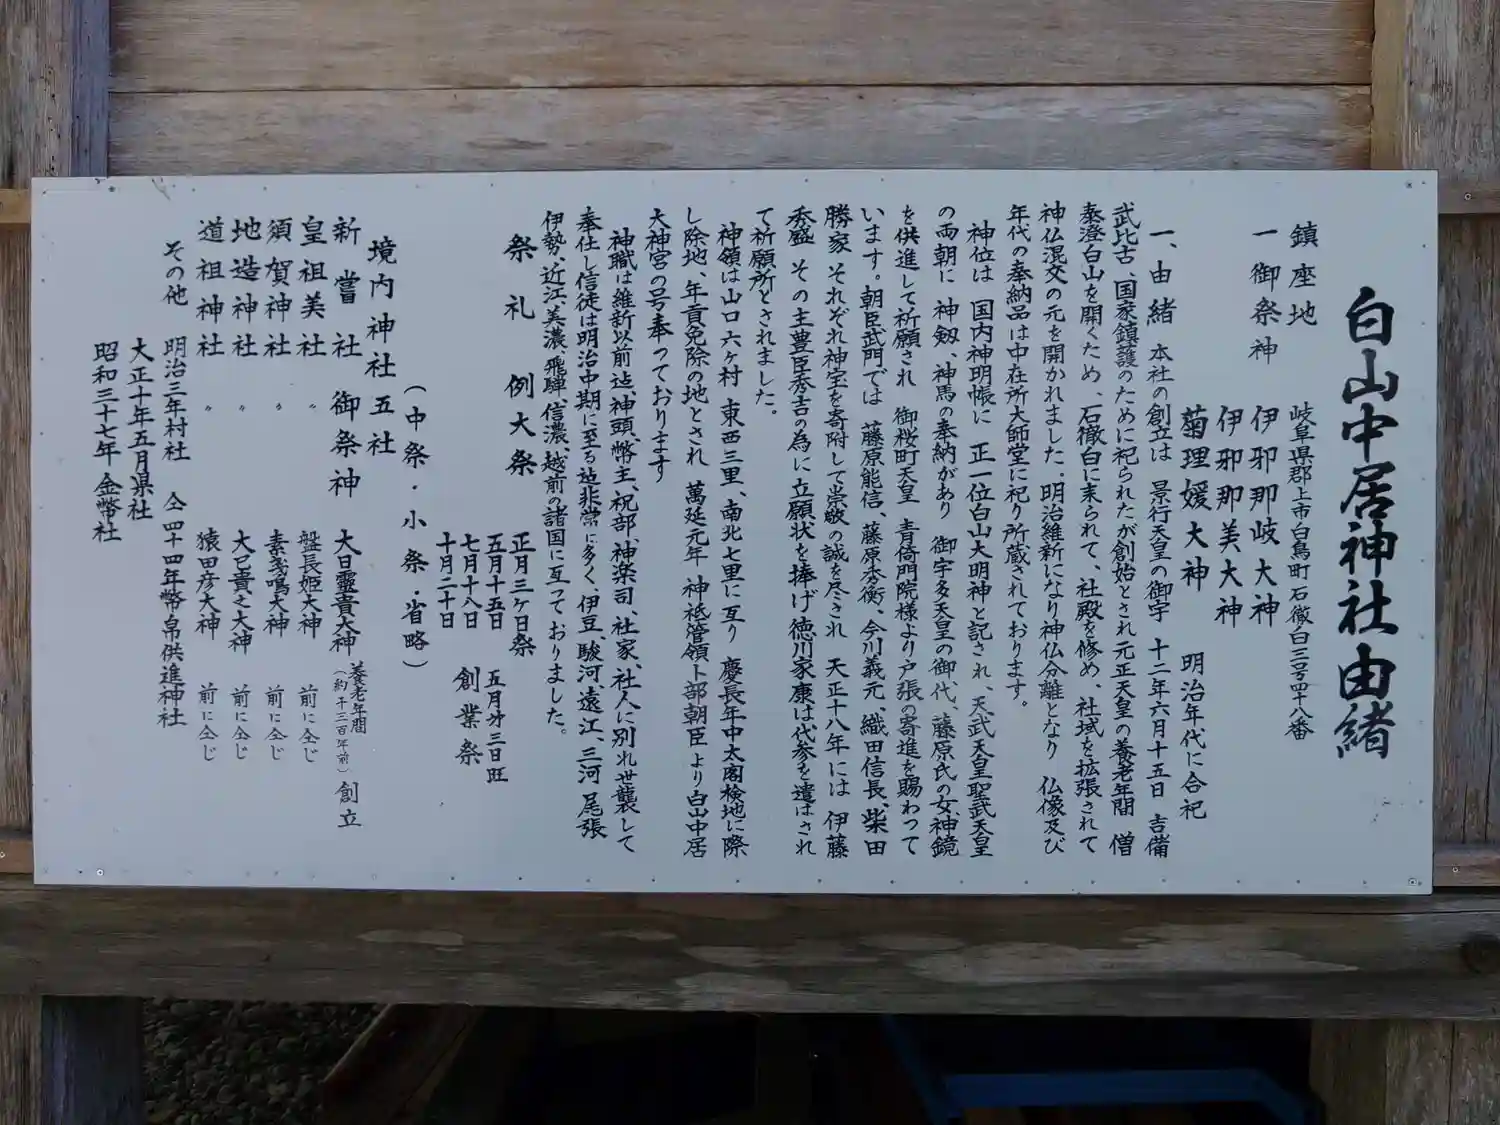 白山中居神社由緒
鎮座地 岐阜県郡上市白鳥町石徹白三号四十八番
一御祭神 伊邪那岐大神
伊邪那美大神
菊理媛大神 明治年代に合祀
一、由緒 本社の創立は 景行天皇の御宇 十二年六月十五日 吉備
武比古、国家鎮護のために祀られたが創始とされ元正天皇の養老年間 僧
泰澄白山を開くため、石徹白に来られて、社殿を修め、社域を拡張されて
神仏混交の元を開かれました.明治維新になり神仏分離となり 仏像及び
年代の奉納品は中在所大師堂に祀り所蔵されております。
神位は 国内神明帳に 正一位白山大明神と記され、天武天皇聖武天皇
の両朝に 神剱、神馬の奉納があり 御宇多天皇の御代、藤原氏の女、神鏡
を供進して祈願され 御桜町天皇 青倚門院様より戸張の寄進を賜わって
います。朝臣武門では 藤原能信、藤原秀衡、今川義元、織田信長、柴田
勝家 それぞれ神宝を寄附して崇敬の誠を尽され 天正十八年には 伊藤
秀盛 その主豊臣秀吉の為に立願状を捧げ徳川家康は代参を遣はされ
て祈願所とされました。
神領は山口六ヶ村 東西三里、南北七里に互り 慶長年中太閤検地に際
し除地、年貢免除の地とされ 萬延元年 神祇管領卜部朝臣より白山中居
大神宮の号奉つております
神職は維新以前迠、神頭、幣主、祝部、神楽司、社家、社人に別れ世襲して
奉仕し信徒は明治中期に至る迠非常に多く、伊豆、駿河遠江、三河 尾張
伊勢、近江、美濃、飛騨、信濃、越前の諸国に互っておりました。
祭礼 例大祭 正月三ヶ日祭
五月十五日 五月第三日旺
七月十八日 創業祭
十月二十日
(中祭・小祭・省略)
境内神社五社
新嘗社 御祭神 大日霊貴大神 養老年間(約千三百年前) 創立
皇祖美社 〃 盤長姫大神 前に仝じ
須賀神社 〃 素戔鳴大神 前に仝じ
地造神社 〃 大己貴之大神 前に仝じ
道祖神社 〃 猿田彦大神 前に仝じ
その他 明治三年村社 仝四十四年幣帛供進神社
大正十年五月県社
昭和三十七年 金幣社